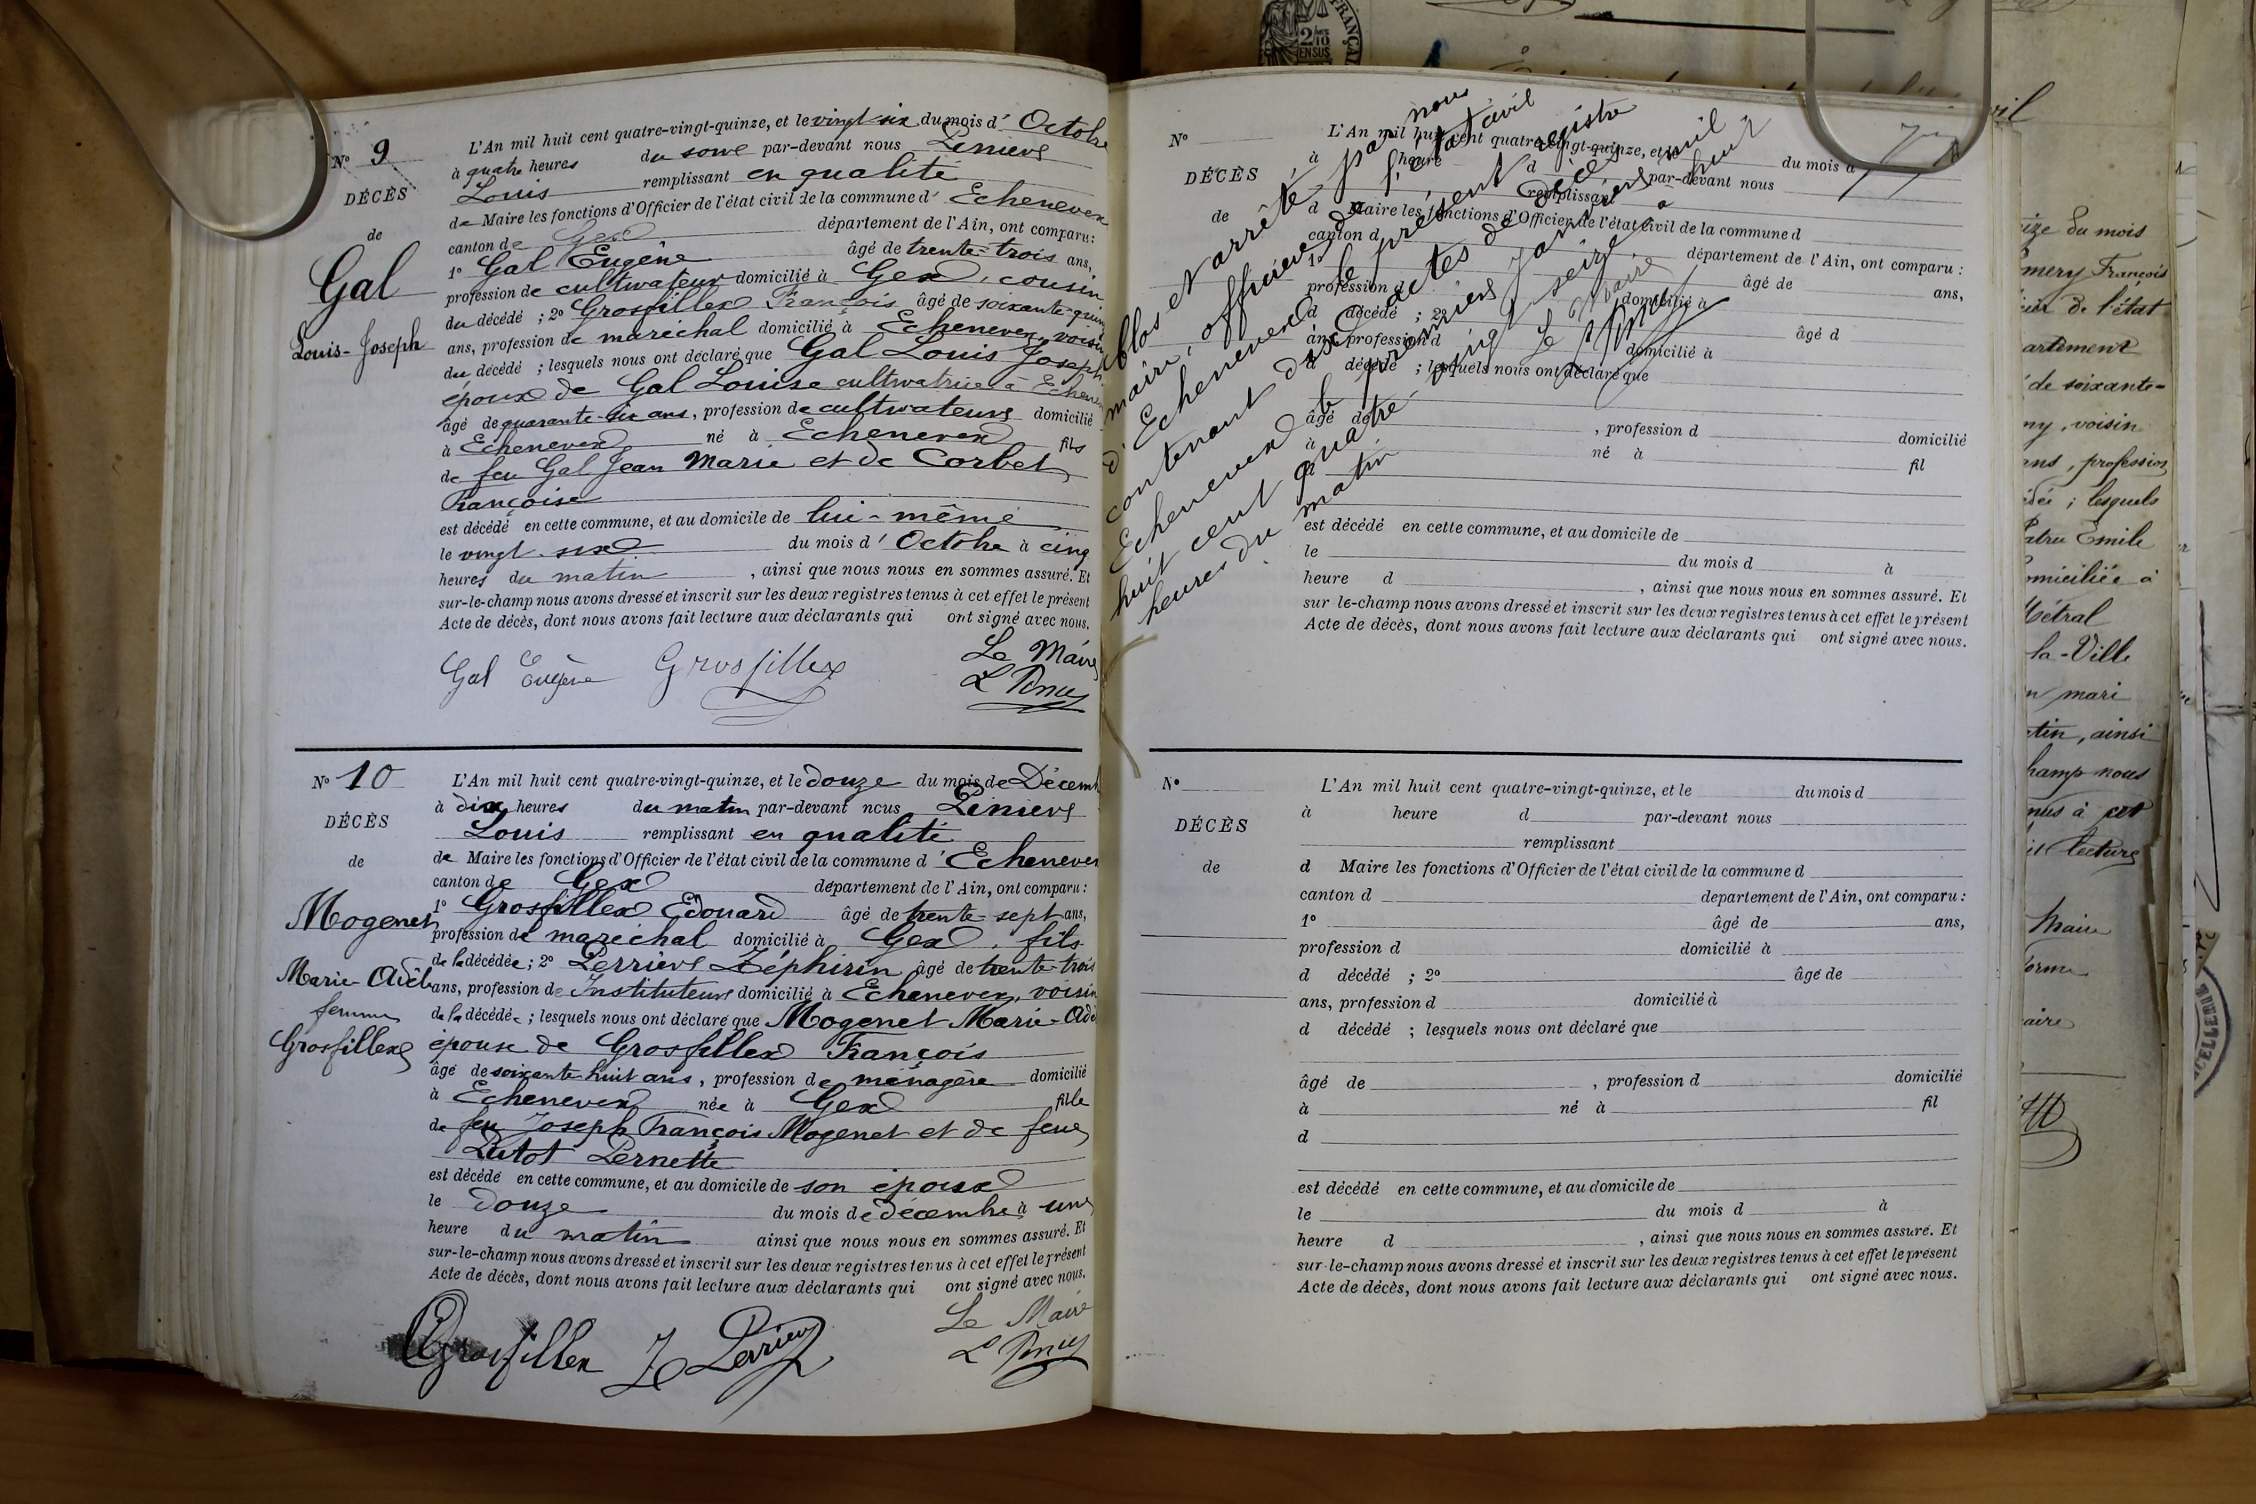 Nº 9
DÉCÈS
de
Gal
Louis-Joseph
L'An mil huit cent quatre-vingt-quinze, et le vingt-six du mois d'Octobre
à quatre heures du soir par-devant nous
Louis remplissant en qualité
de Maire les fonctions d'Officier de l'état civil de la commune d'Echenevex
canton de Gex département de l'Ain, ont comparu:
1º Gal Eugène âgé de trente-trois ans,
profession de cultivateur domicilié à Gex, cousin
du décédé ; 2º Grosfillex François âgé de soixante-quinze
ans, profession de maréchal domicilié à Echenevex, voisin
du décédé ; lesquels nous ont déclaré que Gal Louis Joseph
époux de Gal Louise cultivatrice à Echenevex
âgé de quarante- ans, profession de cultivateur domicilié
à Echenevex né à Echenevex fils
de feu Gal Jean Marie et de Corbet
Françoise
est décédé en cette commune, et au domicile de lui-même
le vingt-six du mois d'Octobre à cinq
heures du matin , ainsi que nous nous en sommes assuré. Et
sur-le-champ nous avons dressé et inscrit sur les deux registres tenus à cet effet le présent
Acte de décès, dont nous avons fait lecture aux déclarants qui ont signé avec nous.
Gal Eugène Grosfillex Le Maire
Nº 10
DÉCÈS
de
Mogenet
Marie-Adèle
femme
Grosfillex
L'An mil huit cent quatre-vingt-quinze, et le douze du mois de Décembre
à dix heures du matin par-devant nous
Louis remplissant en qualité
de Maire les fonctions d'Officier de l'état civil de la commune d'Echenevex
canton de Gex département de l'Ain, ont comparu :
1º Grosfillex Edouard âgé de trente-sept ans,
profession de maréchal domicilié à Gex, fils
de la décédée ; 2º Perrier Zéphirin âgé de trente-trois
ans, profession d'Instituteur domicilié à Echenevex, voisin
de la décédée ; lesquels nous ont déclaré que Mogenet Marie-Adèle
épouse de Grosfillex François
âgé de soixante huit ans, profession de ménagère domicilié
à Echenevex née à Gex fille
de feu Joseph François Mogenet et de feue
Pernette
est décédé en cette commune, et au domicile de son époux
le douze du mois de décembre à une
heure du matin ainsi que nous nous en sommes assuré. Et
sur-le-champ nous avons dressé et inscrit sur les deux registres tenus à cet effet le présent
Acte de décès, dont nous avons fait lecture aux déclarants qui ont signé avec nous.
Grosfillex Z Perrier Le Maire
Clos et arrêté par nous
maire, officier de l'état civil
d'Echenevex le présent registre
contenant dix actes de décès
Echenevex le premier janvier mil
huit cent quatre-vingt seize à huit
heures du matin
Le Maire
Nº
DÉCÈS
de
L'An mil huit cent quatre-vingt-quinze, et le du mois d
à heure d par-devant nous
remplissant
d Maire les fonctions d'Officier de l'état civil de la commune d
canton d département de l'Ain, ont comparu :
1º âgé de ans,
profession d domicilié à
d décédé ; 2º âgé d
ans, profession d domicilié à
d décédé ; lesquels nous ont déclaré que
âgé de , profession d domicilié
à né à fil
d
est décédé en cette commune, et au domicile de
le du mois d à
heure d , ainsi que nous nous en sommes assuré. Et
sur-le-champ nous avons dressé et inscrit sur les deux registres tenus à cet effet le présent
Acte de décès, dont nous avons fait lecture aux déclarants qui ont signé avec nous.
Nº
DÉCÈS
de
L'An mil huit cent quatre-vingt-quinze, et le du mois d
à heure d par-devant nous
remplissant
d Maire les fonctions d'Officier de l'état civil de la commune d
canton d département de l'Ain, ont comparu :
1º âgé de ans,
profession d domicilié à
d décédé ; 2º âgé de
ans, profession d domicilié à
d décédé ; lesquels nous ont déclaré que
âgé de , profession d domicilié
à né à fil
d
est décédé en cette commune, et au domicile de
le du mois d à
heure d , ainsi que nous nous en sommes assuré. Et
sur-le-champ nous avons dressé et inscrit sur les deux registres tenus à cet effet le présent
Acte de décès, dont nous avons fait lecture aux déclarants qui ont signé avec nous.
du mois
François
de l'état
de soixante-
voisin
profession
lesquels
Emile
à
Métral
la-Ville
mari
ainsi
nous
à cet
lecture
Maire